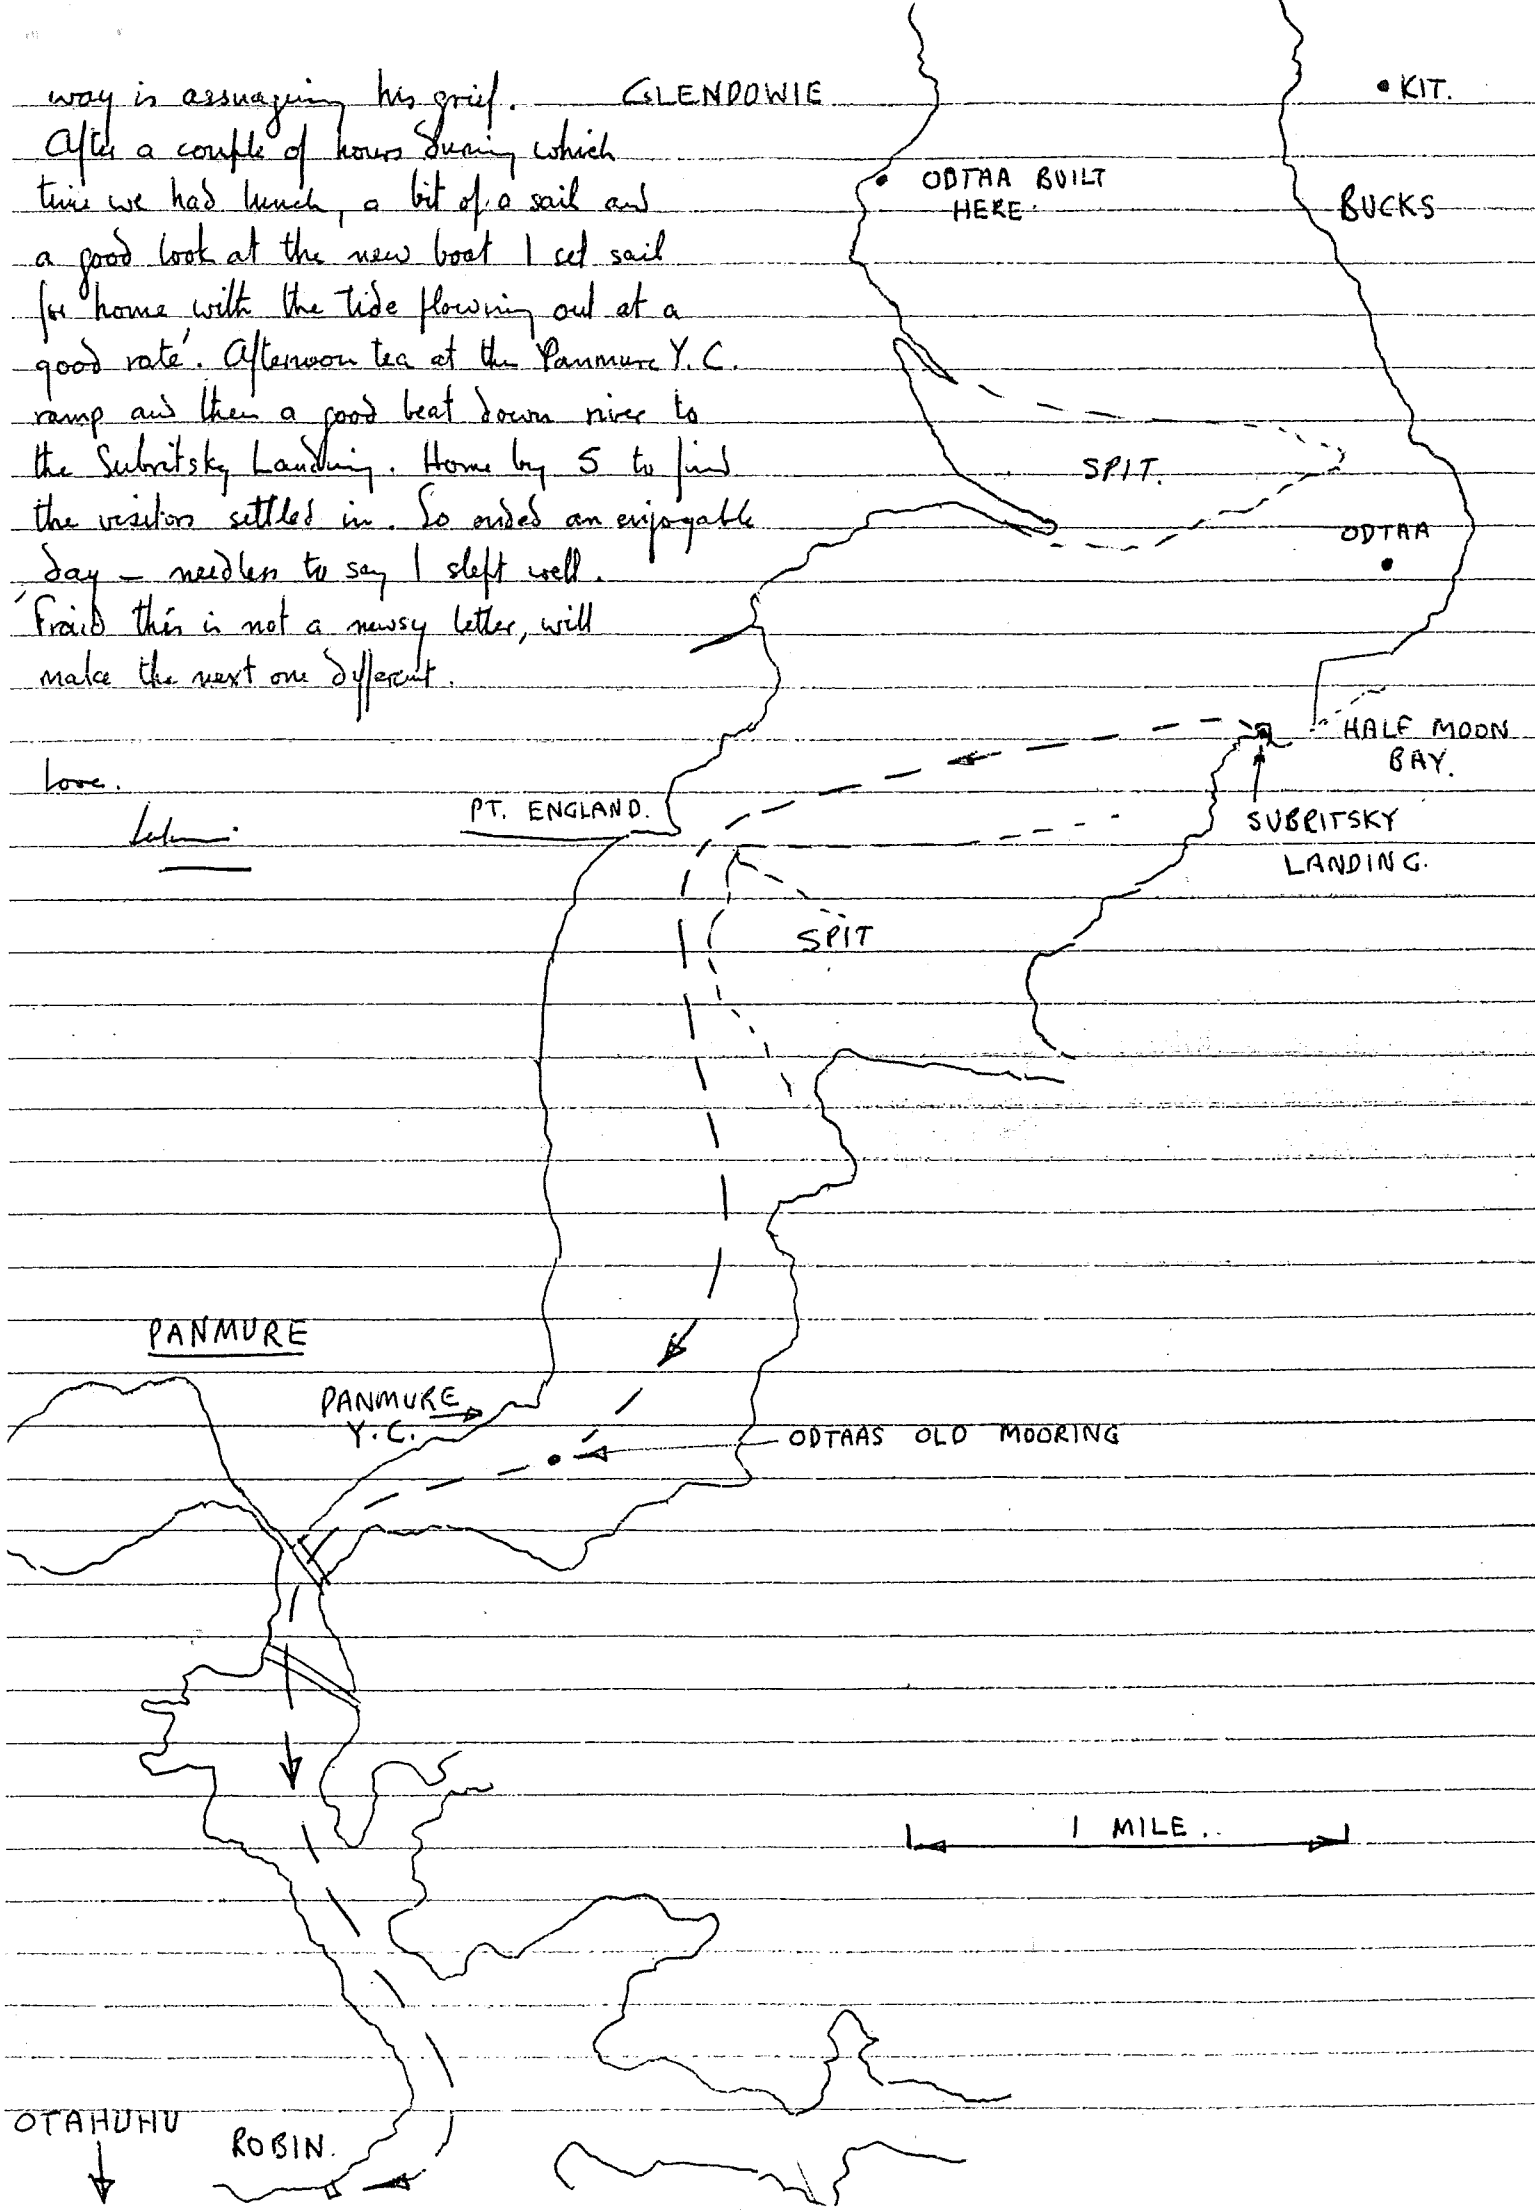 way is assuaging his grief.
After a couple of hours during which
time we had lunch, a bit of a sail and
a good look at the new boat I set sail
for home with the tide flowing out at a
good rate. Afternoon tea at the Panmure Y.C.
ramp and then a good beat down river to
the Subritsky Landing. Home by 5 to find
the visitors settled in. So ended an enjoyable
day – needless to say I slept well.
'Fraid this is not a newsy letter, will
make the next one different.
Love.
GLENDOWIE
• KIT.
ODTAA BUILT
HERE.
BUCKS
SPIT.
ODTAA
HALF MOON
BAY.
PT. ENGLAND.
SUBRITSKY
LANDING.
SPIT
PANMURE
PANMURE
Y.C.
ODTAAS OLD MOORING
1 MILE..
OTAHUHU
ROBIN.